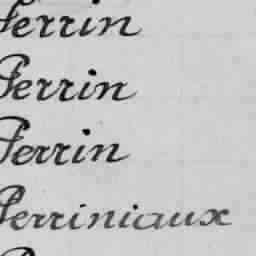 Perrin
Perrin
Perrin
Perriniaux